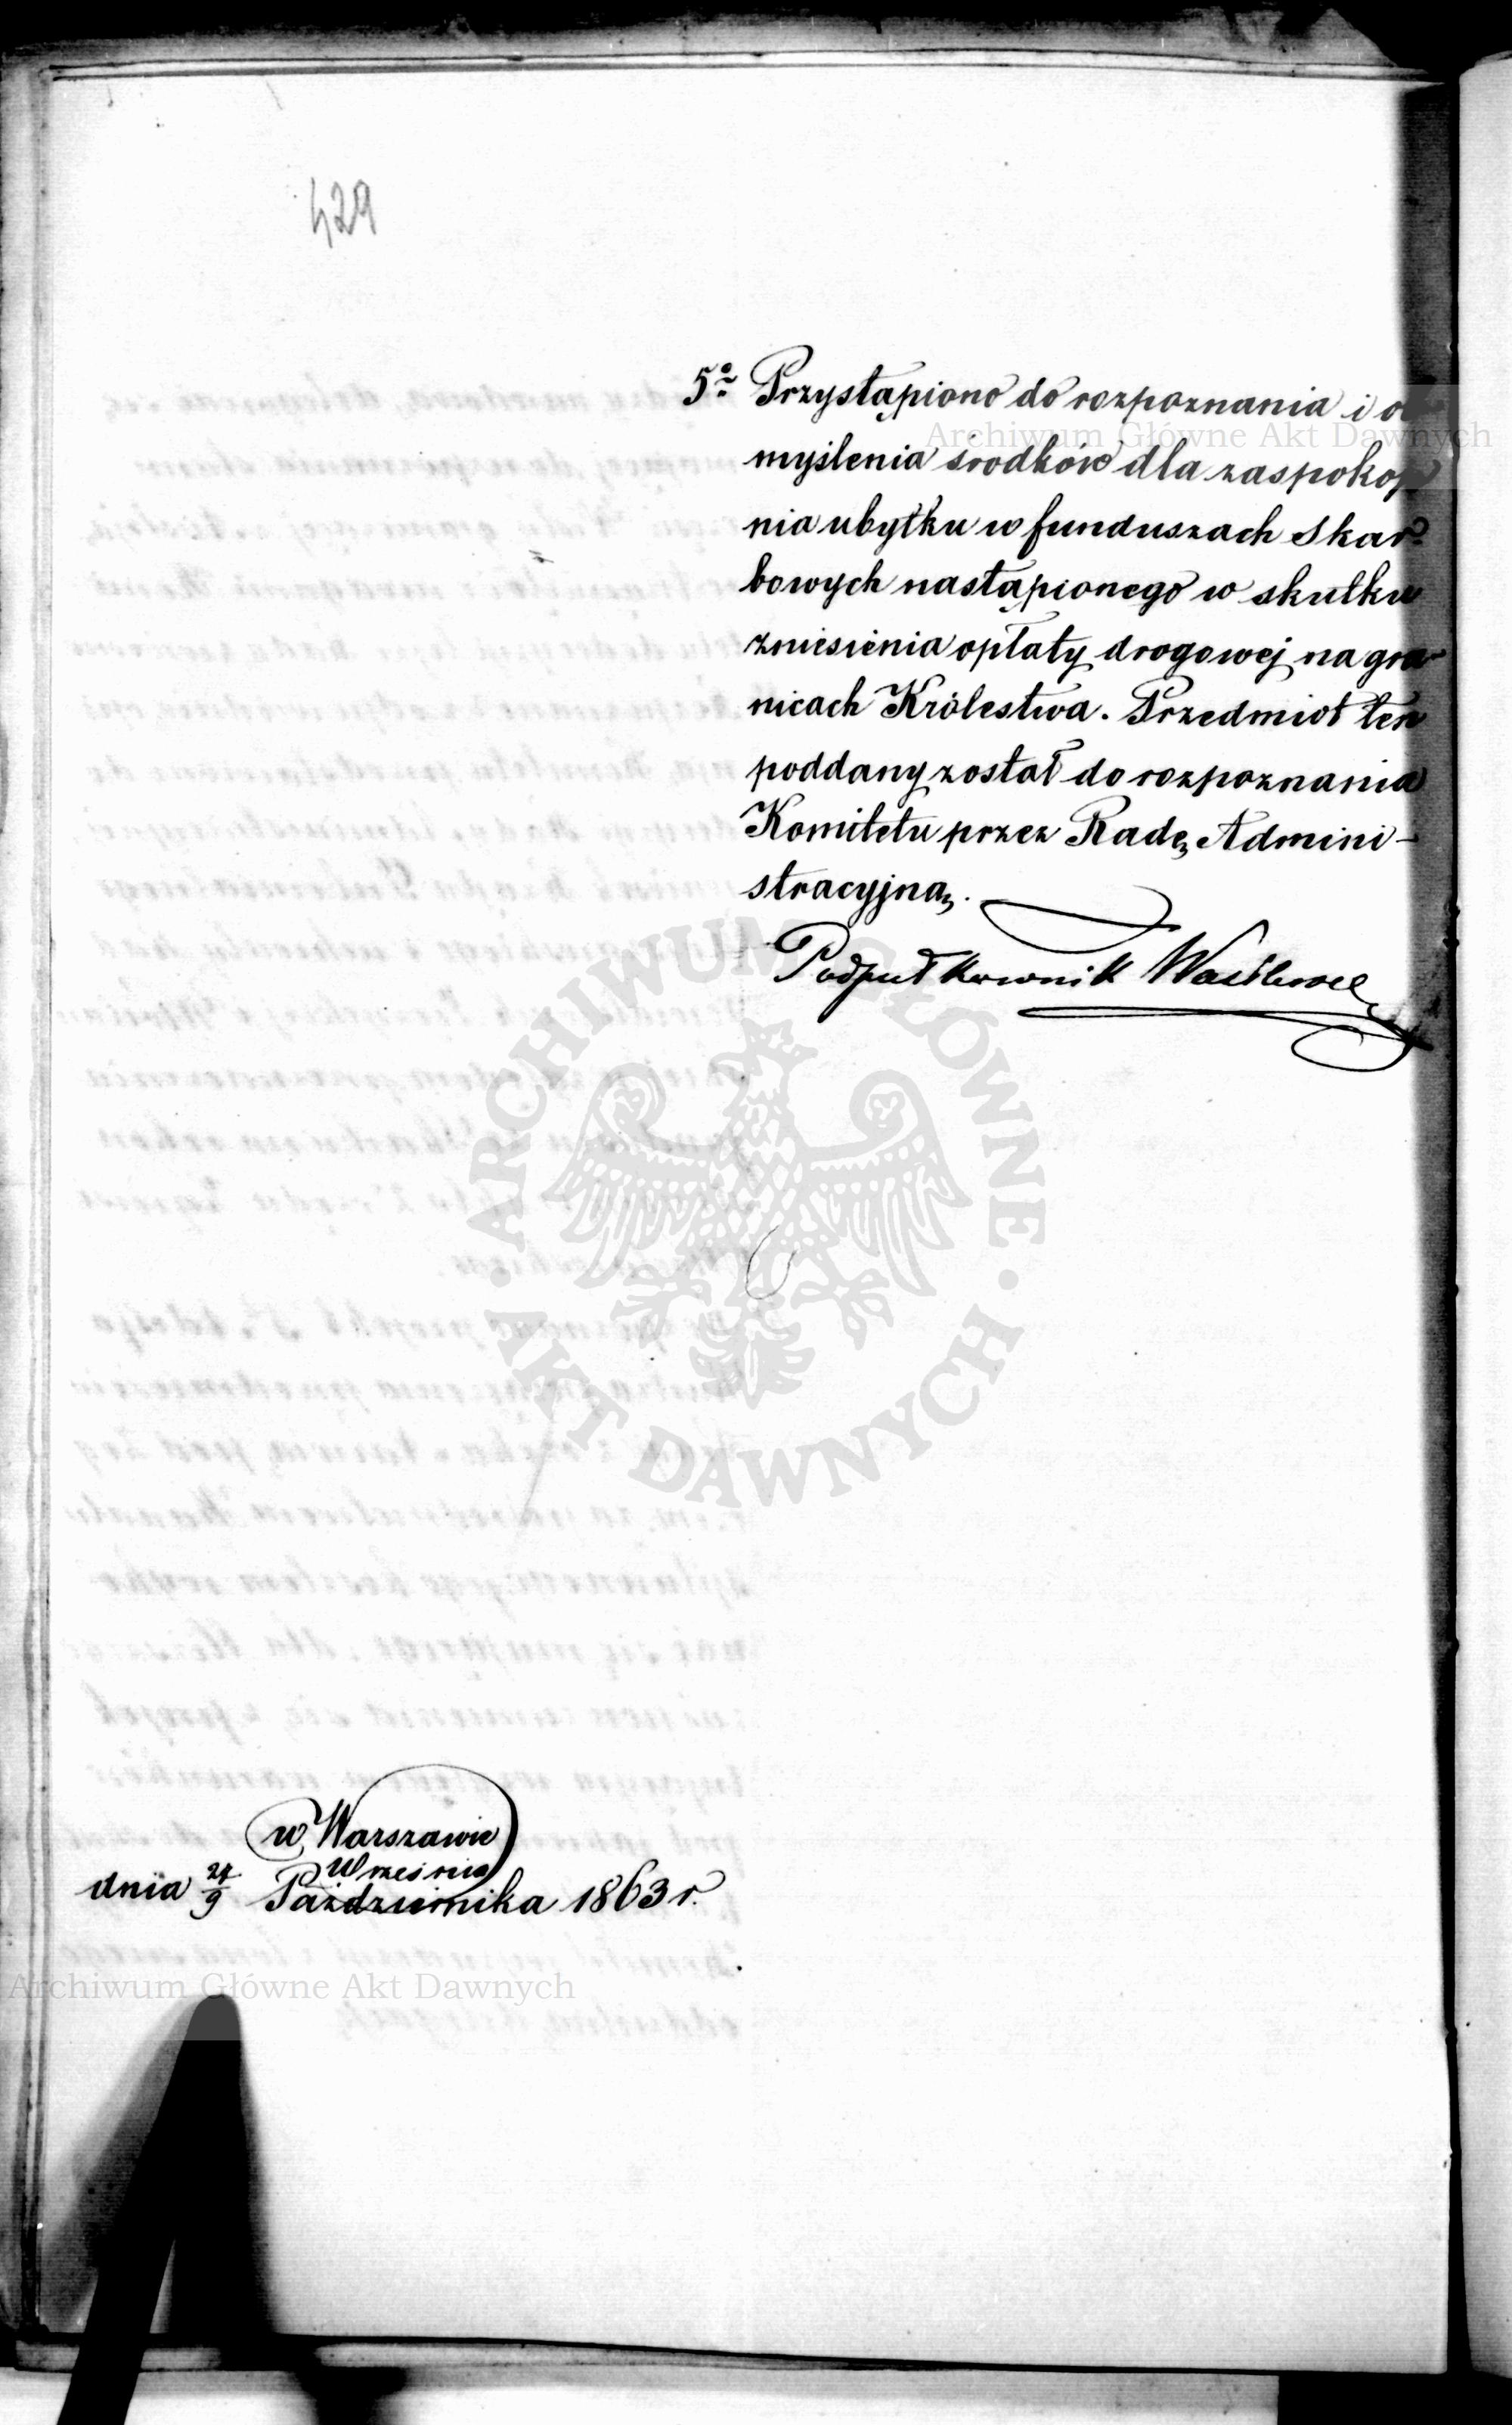 429
5º Przystąpiono do rozpoznania i ob
myślenia środków dla zaspokoje
nia ubytku w funduszach Skar-
bowych nastąpionego w skutku
zniesienia opłaty drogowej na gra-
nicach Królestwa. Przedmiot ten
poddany został do rozpoznania
Komitetu przez Radę Admini-
stracyjną.
Podpułkownik
w Warszawie
Września
dnia 24/9 Października 1863 r.
Archiwum Główne Akt Dawnych
ARCHIWUM GŁÓWNE · AKT DAWNYCH ·
Archiwum Główne Akt Dawnych